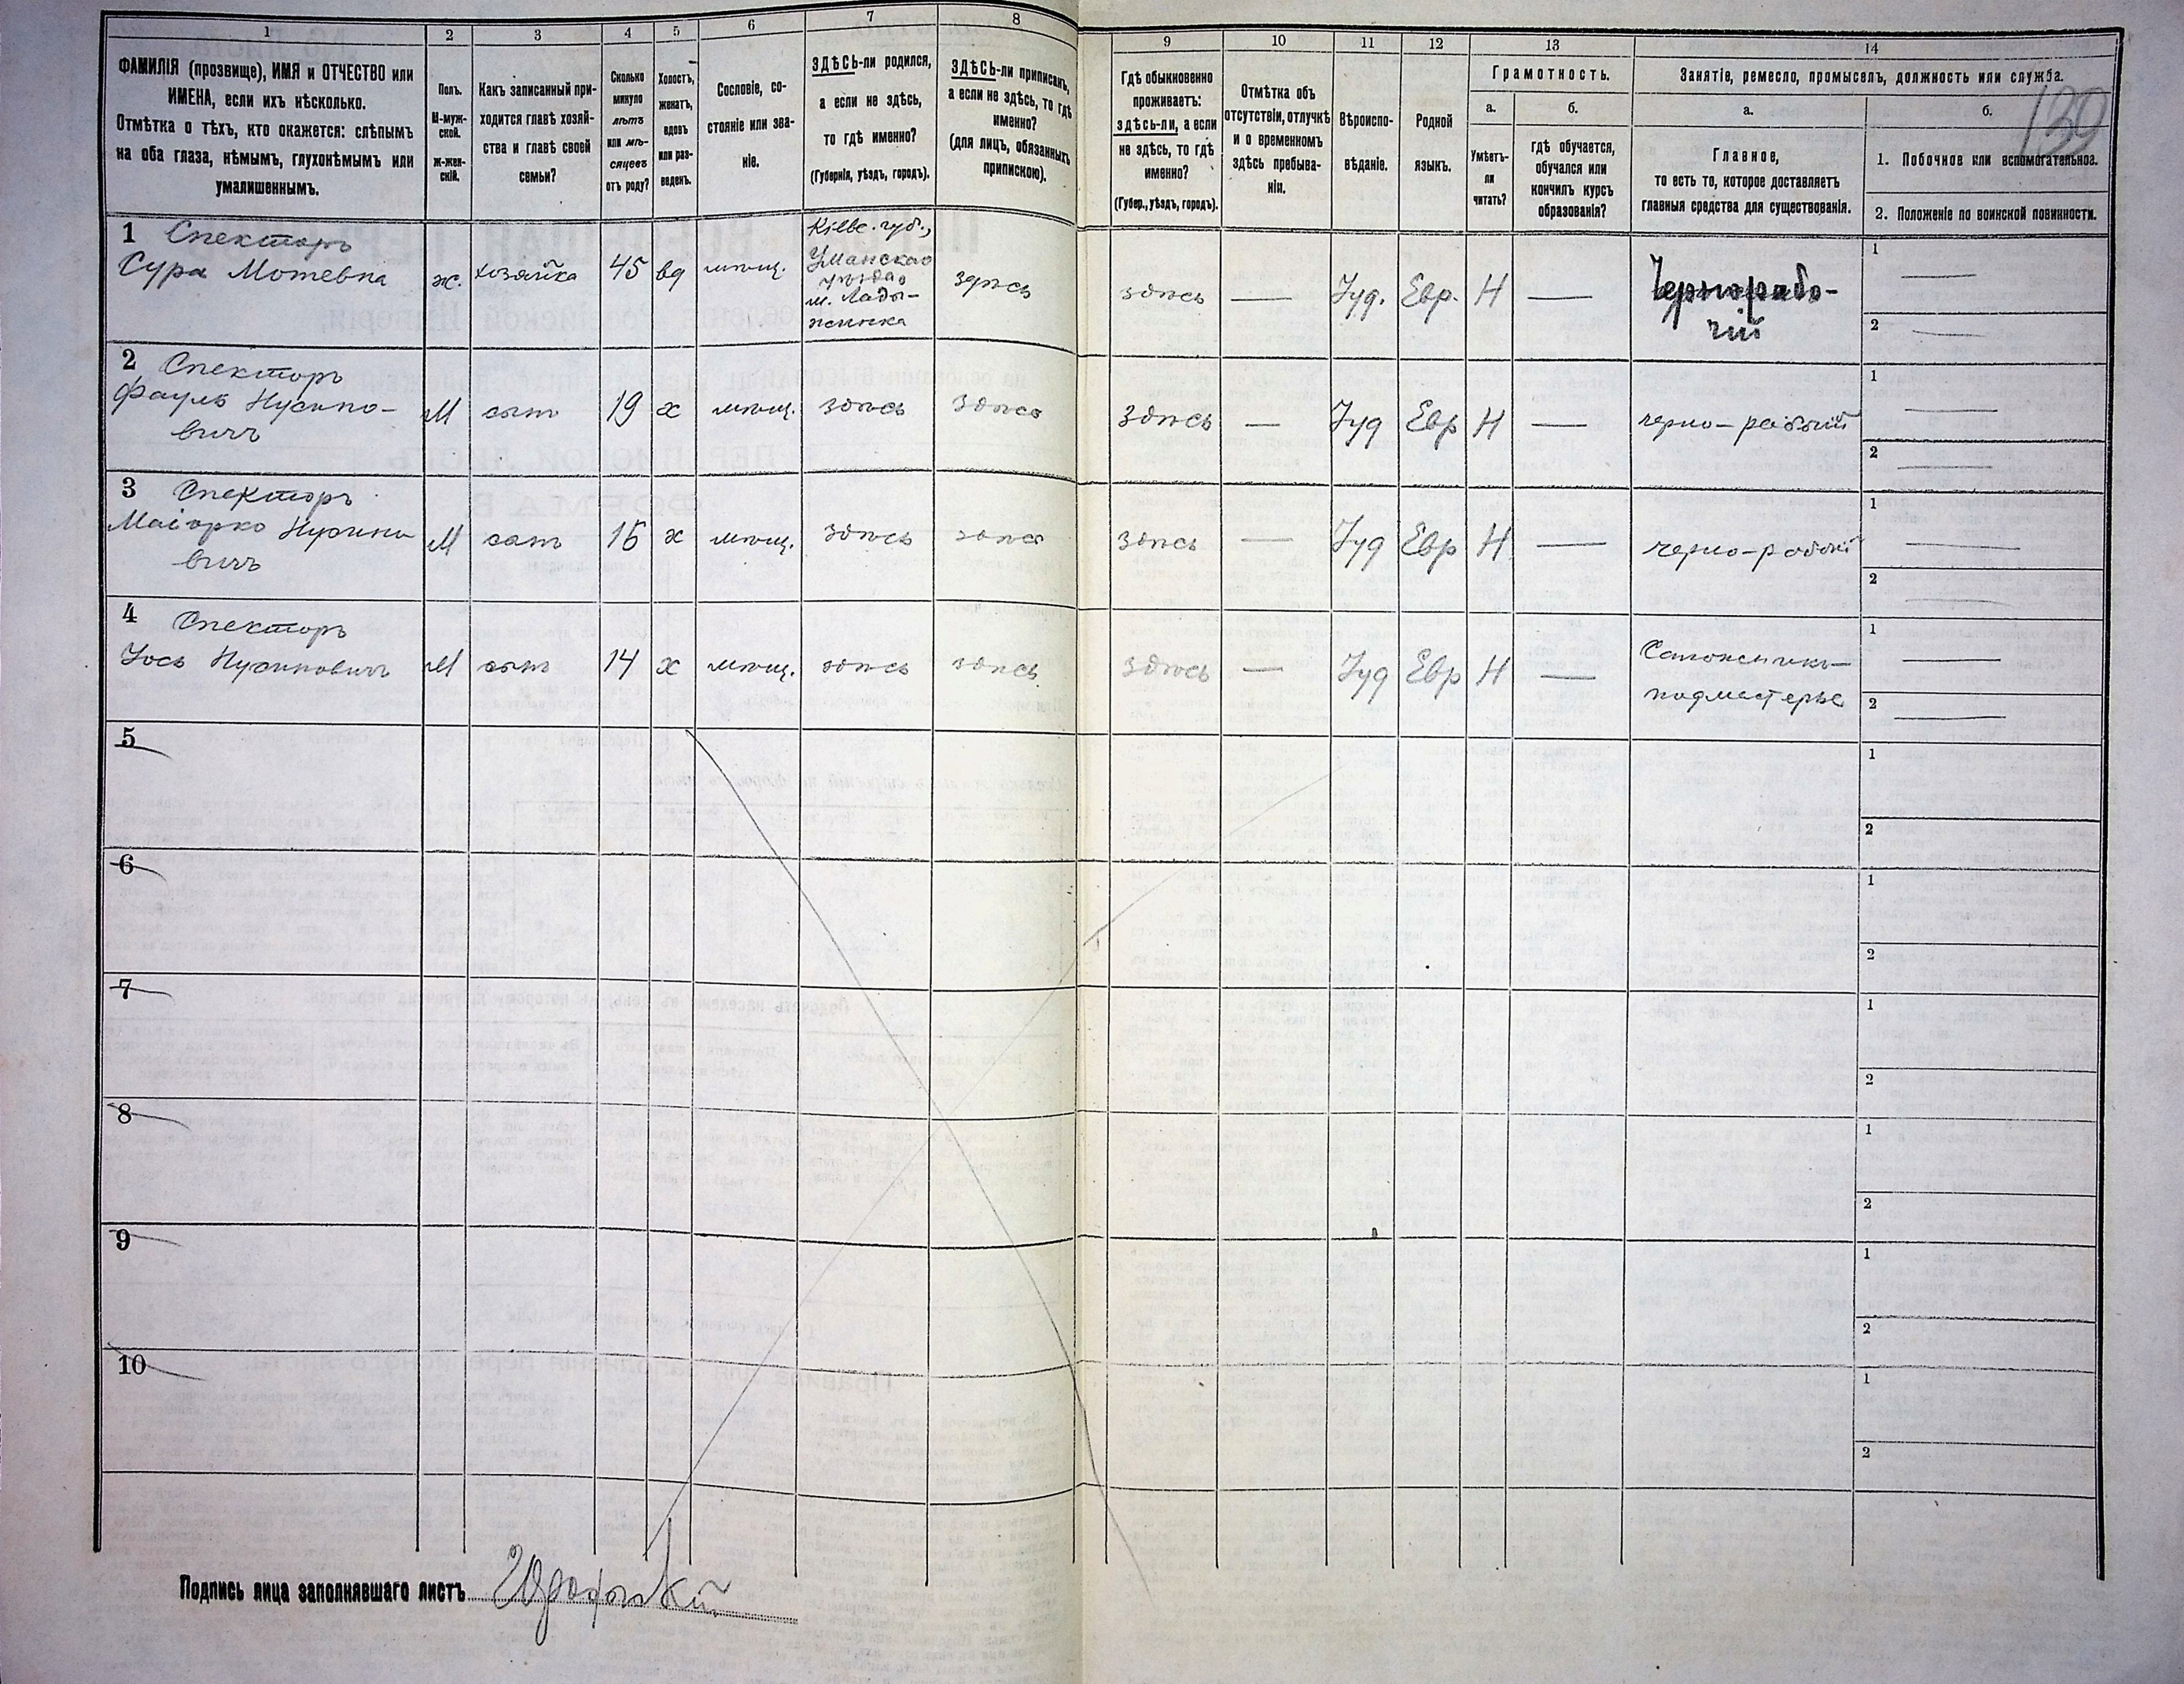 1
2
3
4
5
6
7
8
ФАМИЛІЯ (прозвище), ИМЯ и ОТЧЕСТВО или
ИМЕНА, если ихъ нѣсколько.
Отмѣтка о тѣхъ, кто окажется: слѣпымъ
на оба глаза, нѣмымъ, глухонѣмымъ или
умалишеннымъ.
Полъ.
М-муж-
ской.
ж-жен-
скій.
Какъ записанный при-
ходится главѣ хозяй-
ства и главѣ своей
семьи?
Сколько
минуло
лѣтъ
или мѣ-
сяцевъ
отъ роду?
Холостъ,
женатъ,
вдовъ
или раз-
веденъ.
Сословіе, со-
стояніе или зва-
ніе.
ЗДѢСЬ-ли родился,
а если не здѣсь,
то гдѣ именно?
(Губернія, уѣздъ, городъ).
ЗДѢСЬ-ли приписанъ,
а если не здѣсь, то гдѣ
именно?
(для лицъ, обязанныхъ
припискою).
9
10
11
12
13
14
Гдѣ обыкновенно
проживаетъ:
здѣсь-ли, а если
не здѣсь, то гдѣ
именно?
(Губер., уѣздъ, городъ).
Отмѣтка объ
отсутствіи, отлучкѣ
и о временномъ
здѣсь пребыва-
ніи.
Вѣроиспо-
вѣданіе.
Родной
языкъ.
Грамотность.
а.
б.
Умѣетъ-
ли
читать?
гдѣ обучается,
обучался или
кончилъ курсъ
образованія?
Занятіе, ремесло, промыселъ, должность или служба.
а.
б.
139
Главное,
то есть то, которое доставляетъ
главныя средства для существованія.
1. Побочное или вспомогательное.
2. Положеніе по воинской повинности.
1 Спекторъ
Сура Мотевна
ж.
хозяйка
45
вд
мѣщ.
Кіевс. губ.,
Уманскаго
уѣзда
м. Лады-
жинка
здѣсь
здѣсь
Іуд.
Евр.
Н
Чернорабо-
чій
1
2
2 Спекторъ
Фауль Нусино-
вичъ
М
сынъ
19
х
мѣщ.
здѣсь
здѣсь
здѣсь
Іуд
Евр
Н
черно-рабочій
1
2
3 Спекторъ
Маіорко Нусино
вичъ
М
сынъ
х
мѣщ.
здѣсь
здѣсь
здѣсь
Іуд
Евр
Н
черно-рабочій
1
2
4 Спекторъ
Іось Нусиновичъ
М
сынъ
14
х
мѣщ.
здѣсь
здѣсь
здѣсь
Іуд
Евр
Н
Сапожникъ-
подмастерье
1
2
5
1
2
6
1
2
7
1
2
8
1
2
9
1
2
10
1
2
Подпись лица заполнявшаго листъ